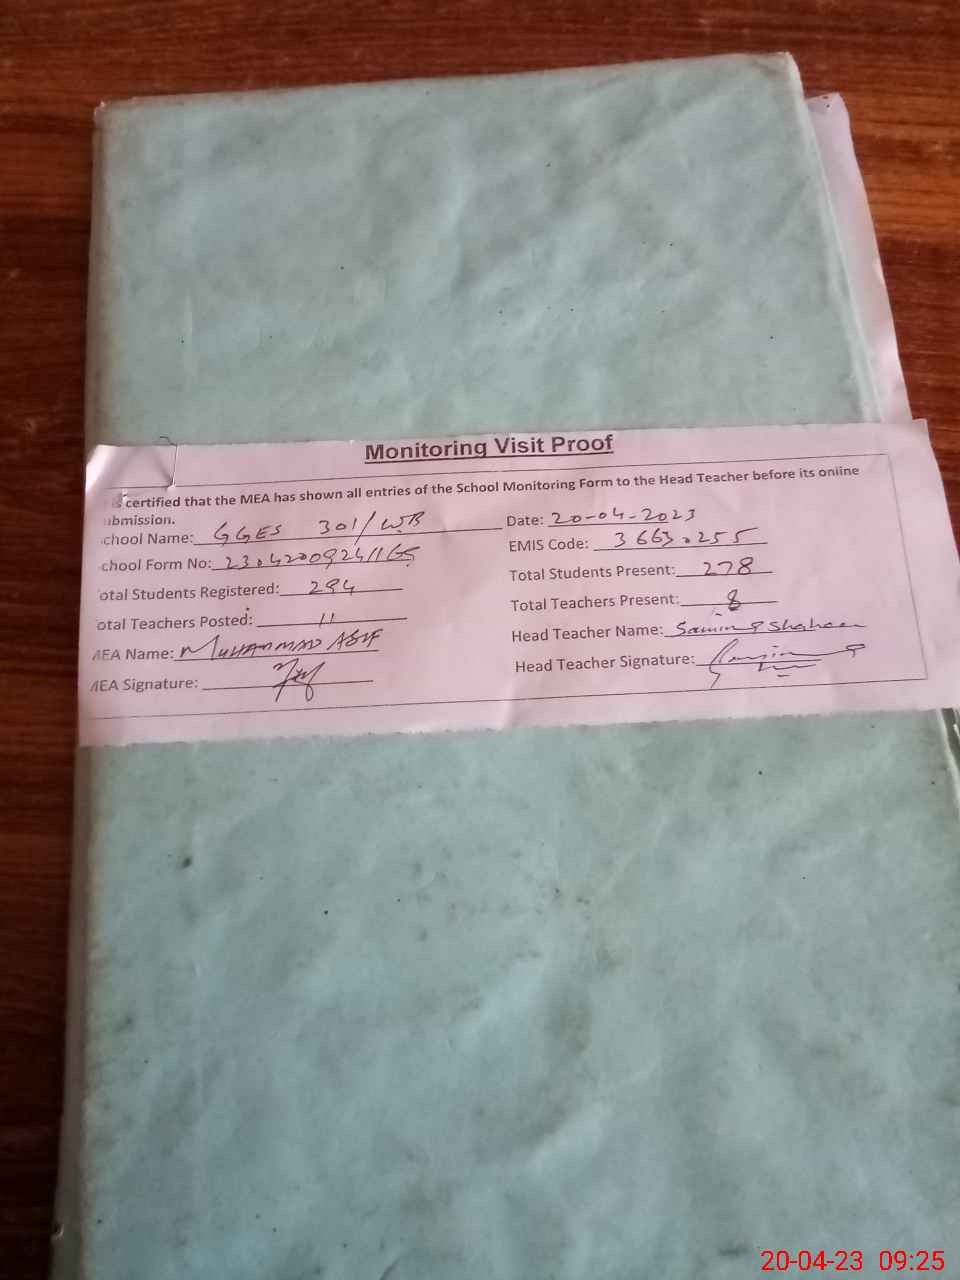 Monitoring Visit Proof
is certified that the MEA has shown all entries of the School Monitoring Form to the Head Teacher before its online
ubmission.
chool Name: GGES 301/WB Date: 20-04-2023
chool Form No: EMIS Code: 36630255
otal Students Registered: 294 Total Students Present: 278
otal Teachers Posted: 11 Total Teachers Present: 8
MEA Name: MUHAMMAD ASIF Head Teacher Name: Shaheen
MEA Signature: Head Teacher Signature:
20-04-23 09:25